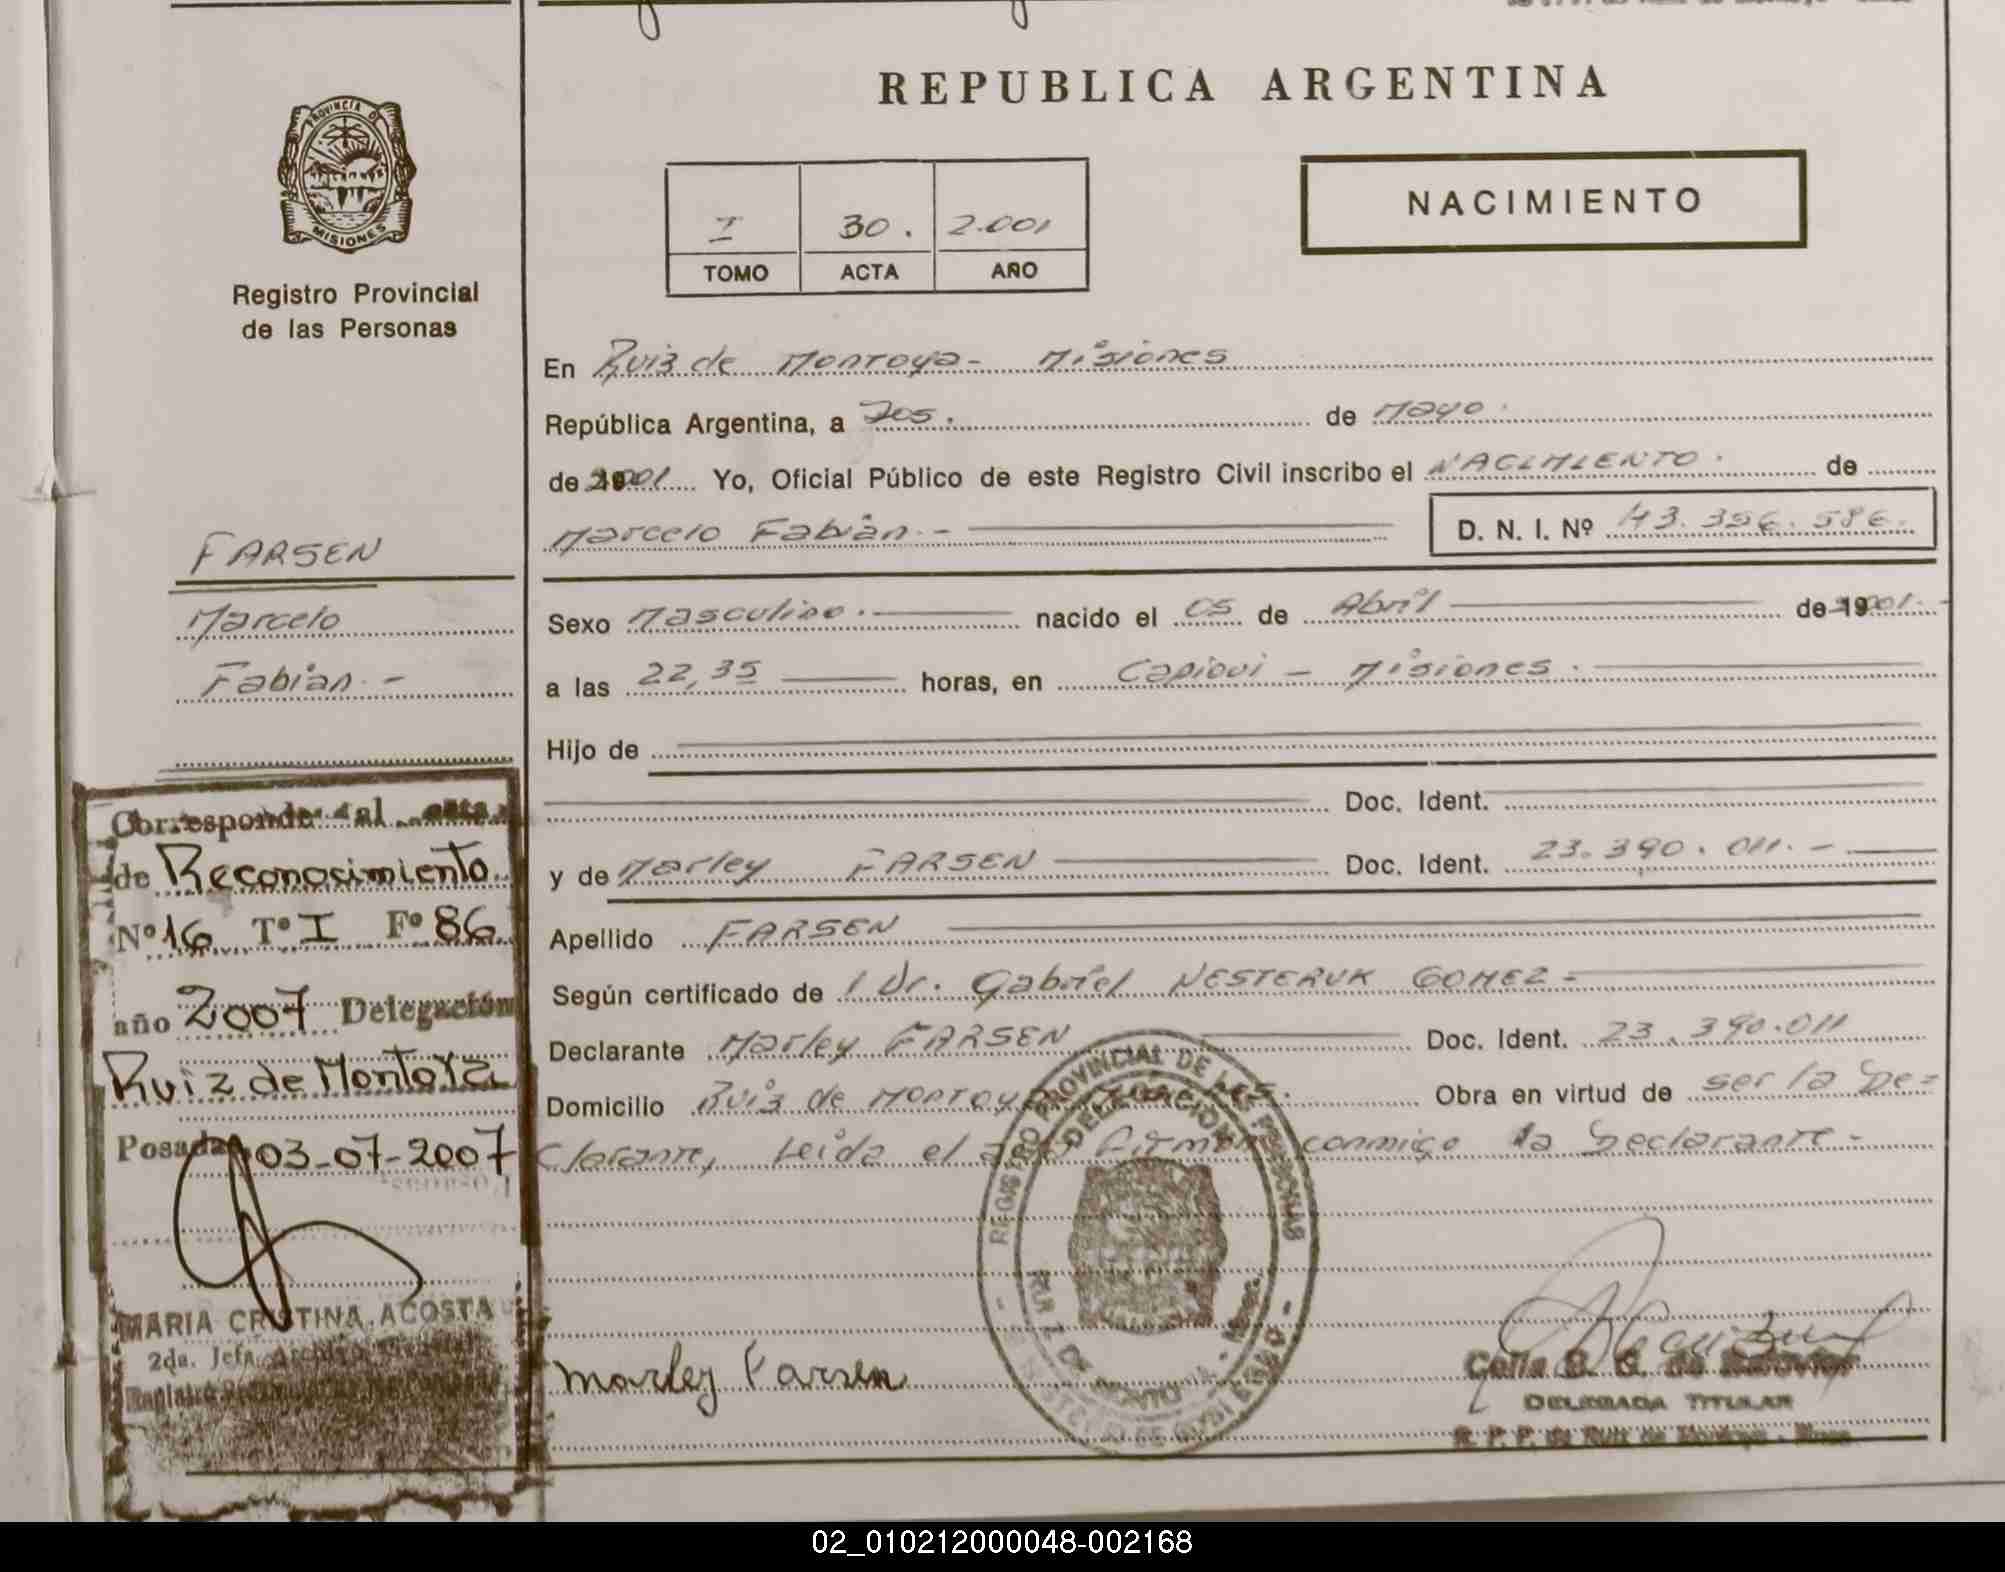 PROVINCIA DE
MISIONES
Registro Provincial
de las Personas
REPUBLICA ARGENTINA
NACIMIENTO
I 30. 2.001
TOMO ACTA AÑO
En Ruiz de Montoya- Misiones
República Argentina, a Dos. de Mayo.
de 2001 Yo, Oficial Público de este Registro Civil inscribo el NACIMIENTO. de
Marcelo Fabián.- D. N. I. Nº 43.356.586.
FARSEN
Marcelo
Fabián.-
Sexo Masculino. nacido el 05 de Abril de 19 2001.-
a las 22,35 horas, en Capioví - Misiones.
Hijo de
Doc. Ident.
y de Marley FARSEN Doc. Ident. 23.390.011.-
Apellido FARSEN
Según certificado de / Dr. Gabriel NESTERUK GOMEZ-
Declarante Marley FARSEN Doc. Ident. 23.390.011
Domicilio Ruiz de Montoya Misiones. Obra en virtud de ser la De=
clarante, Leída el acta firman conmigo la Declarante-
Corresponde al acta
de Reconocimiento
Nº 16 Tº I Fº 86
año 2007 Delegación
Ruiz de Montoya
Posadas 03-07-2007
MARIA CRISTINA ACOSTA
2da. Jefa Archivo General
REGISTRO PROVINCIAL DE LAS PERSONAS
DELEGACION
RUIZ DE MONTOYA - Mnes.
Marley Farsen
DELEGADA TITULAR
R. P. P. de Ruiz de Montoya - Mnes.
02_010212000048-002168